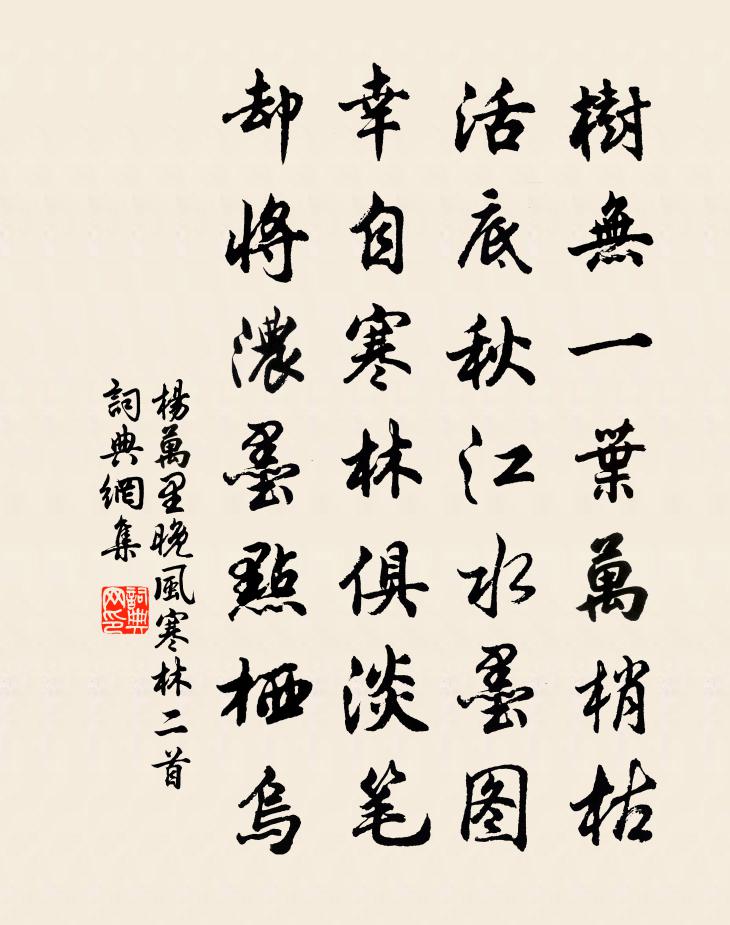 樹無一葉萬梢枯
活底秋江水墨图
幸自寒林俱淡笔
却将濃墨點栖烏
楊萬里晚風寒林二首
詞典網集
詞典网印